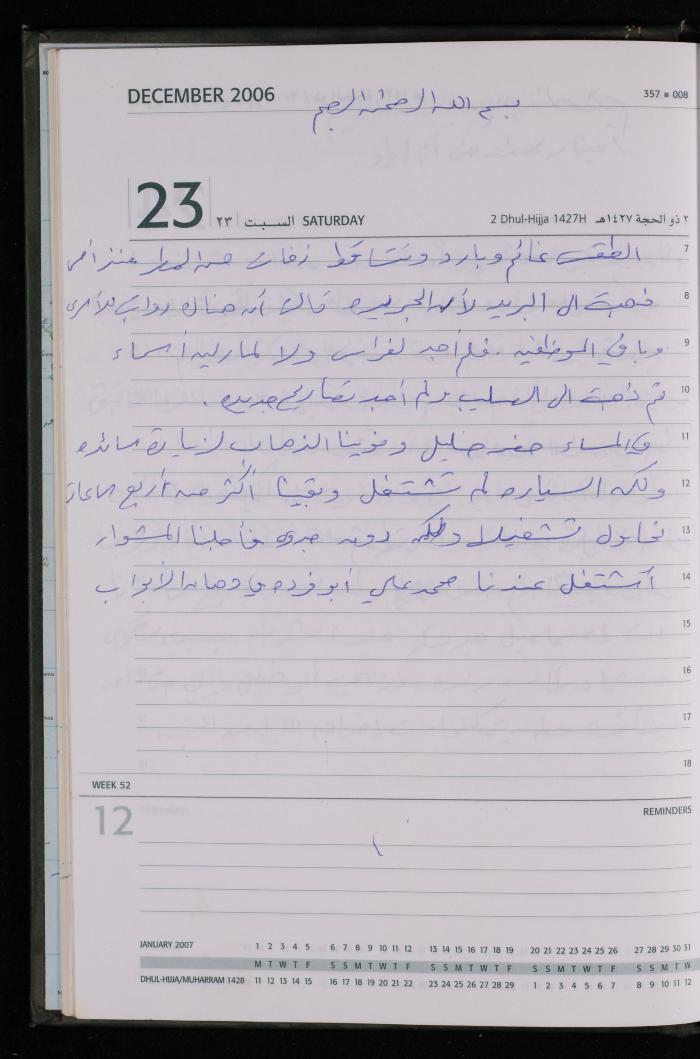 DECEMBER 2006
بسم الله الرحمن الرحيم
357 ■ 008
23 ٢٣ السبت SATURDAY
2 Dhul-Hijja 1427H ٢ ذو الحجة ١٤٢٧هـ
7 الطقس غائم وبارد وتتساقط زخات من المطر منذ أمس
8 ذهبت الى البريد لأن الجريده قالت أن هناك رواتب للأسرى
9 وباقي الموظفين . فلم أجد لفراس ولا لمارلين أسماء
10 ثم ذهبت الى الصليب ولم أجد تصاريح جديده .
11 في المساء حضر خليل ونوينا الذهاب لزيارة مائده
12 ولكن السياره لم تشتغل وبقينا أكثر من أربع ساعات
13 نحاول تشغيلها ولكن دون جدوى فأجلنا المشوار
14 أشتغل عندنا محمد علي أبو فرده في دهان الأبواب
15
16
17
18
WEEK 52
12
REMINDERS
JANUARY 2007 1 2 3 4 5 6 7 8 9 10 11 12 13 14 15 16 17 18 19 20 21 22 23 24 25 26 27 28 29 30 31
M T W T F S S M T W T F S S M T W T F S S M T W T F S S M T W
DHUL-HIJJA/MUHARRAM 1428 11 12 13 14 15 16 17 18 19 20 21 22 23 24 25 26 27 28 29 1 2 3 4 5 6 7 8 9 10 11 12